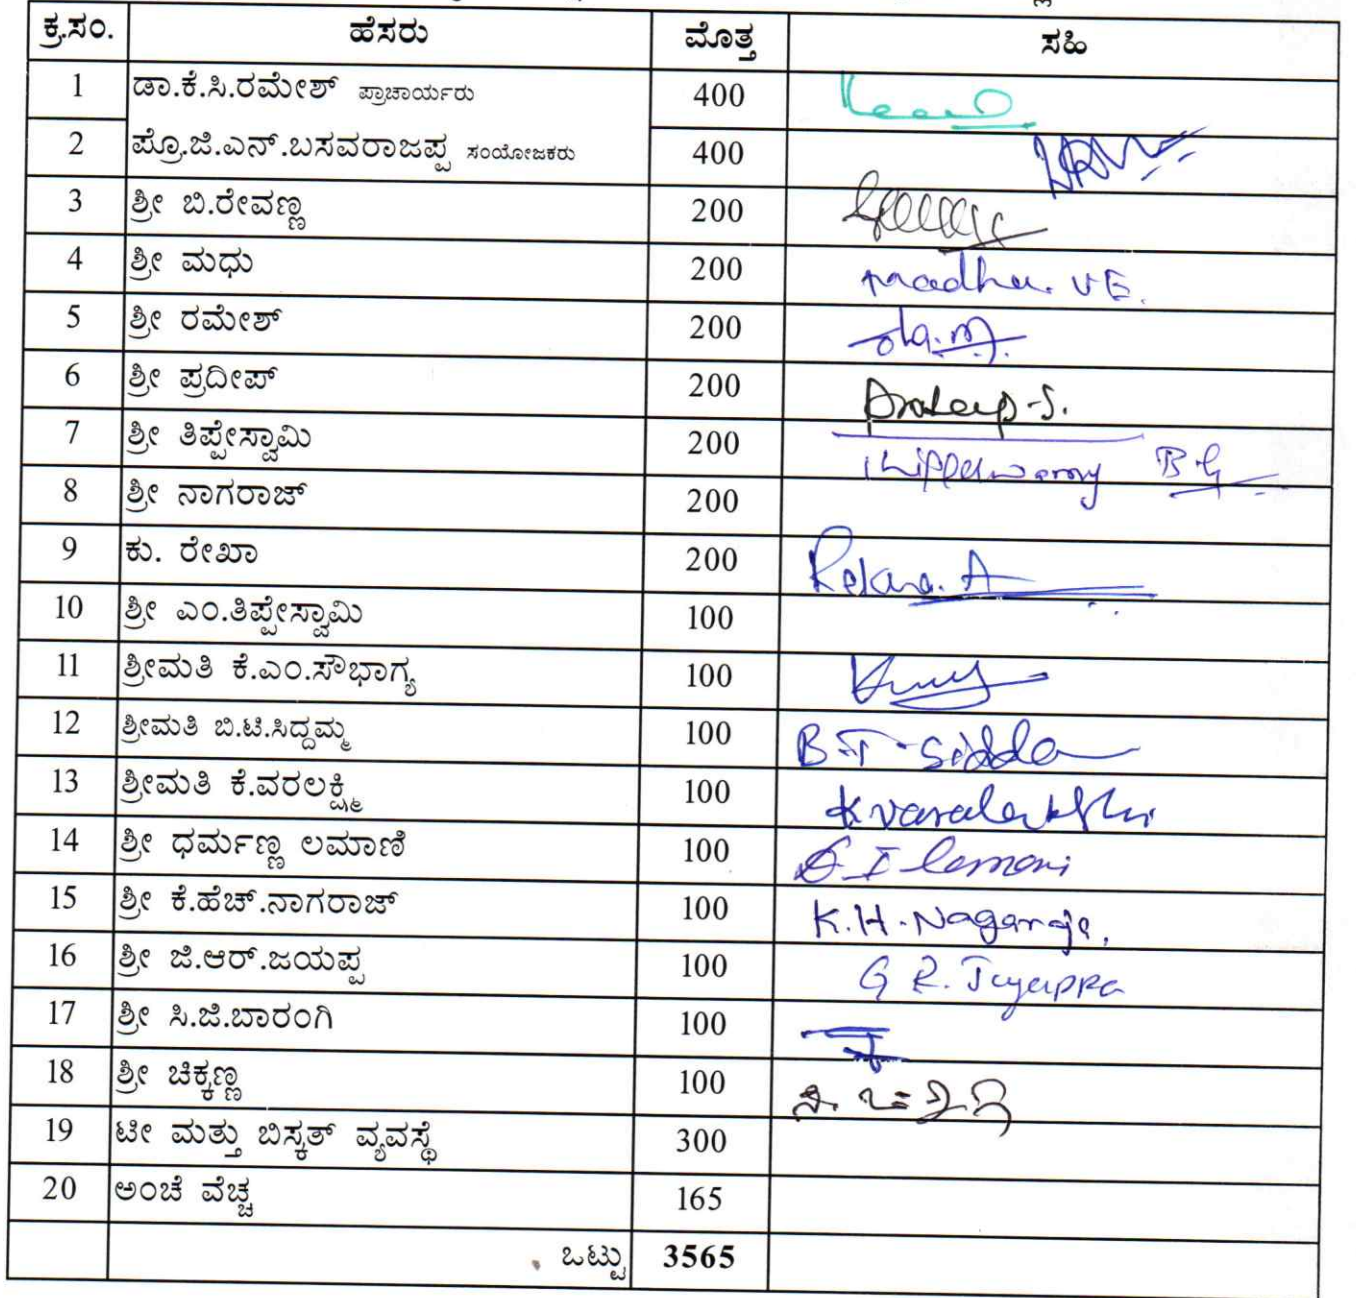 ಕ್ರ.ಸಂ. ಹೆಸರು ಮೊತ್ತ ಸಹಿ
1 ಡಾ.ಕೆ.ಸಿ.ರಮೇಶ್ ಪ್ರಾಚಾರ್ಯರು 400
2 ಪ್ರೊ.ಜಿ.ಎನ್.ಬಸವರಾಜಪ್ಪ ಸಂಯೋಜಕರು 400
3 ಶ್ರೀ ಬಿ.ರೇವಣ್ಣ 200
4 ಶ್ರೀ ಮಧು 200 madhu. V E.
5 ಶ್ರೀ ರಮೇಶ್ 200
6 ಶ್ರೀ ಪ್ರದೀಪ್ 200 Pradeep.S.
7 ಶ್ರೀ ತಿಪ್ಪೇಸ್ವಾಮಿ 200 Thippeswamy B.G
8 ಶ್ರೀ ನಾಗರಾಜ್ 200
9 ಕು. ರೇಖಾ 200 Rekha. A
10 ಶ್ರೀ ಎಂ.ತಿಪ್ಪೇಸ್ವಾಮಿ 100
11 ಶ್ರೀಮತಿ ಕೆ.ಎಂ.ಸೌಭಾಗ್ಯ 100
12 ಶ್ರೀಮತಿ ಬಿ.ಟಿ.ಸಿದ್ದಮ್ಮ 100 B.T. Sidda
13 ಶ್ರೀಮತಿ ಕೆ.ವರಲಕ್ಷ್ಮಿ 100 K varalakshmi
14 ಶ್ರೀ ಧರ್ಮಣ್ಣ ಲಮಾಣಿ 100 lamani
15 ಶ್ರೀ ಕೆ.ಹೆಚ್.ನಾಗರಾಜ್ 100 K.H.Nagaraja.
16 ಶ್ರೀ ಜಿ.ಆರ್.ಜಯಪ್ಪ 100 G R. Jayappa
17 ಶ್ರೀ ಸಿ.ಜಿ.ಬಾರಂಗಿ 100
18 ಶ್ರೀ ಚಿಕ್ಕಣ್ಣ 100
19 ಟೀ ಮತ್ತು ಬಿಸ್ಕತ್ ವ್ಯವಸ್ಥೆ 300
20 ಅಂಚೆ ವೆಚ್ಚ 165
ಒಟ್ಟು 3565